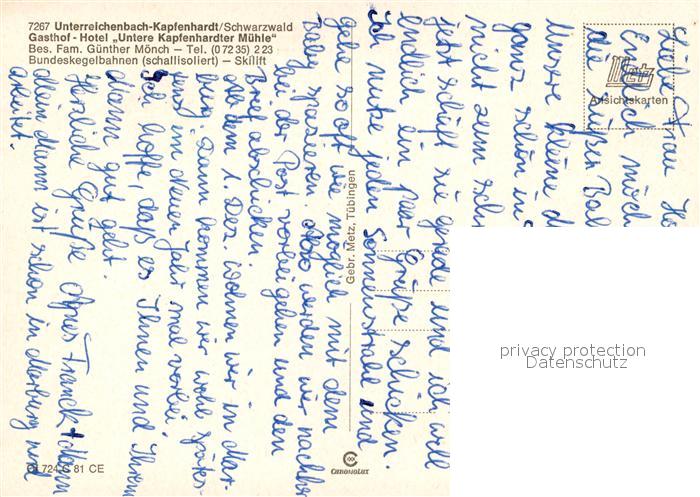 7267 Unterreichenbach-Kapfenhardt/Schwarzwald
Gasthof - Hotel „Untere Kapfenhardter Mühle"
Bes. Fam. Günther Mönch — Tel. (0 72 35) 2 23
Bundeskegelbahnen (schallisoliert) — Skilift
Metz
Ansichtskarten
Liebe Frau
Endlich möch
die süßen
Unsere kleine
ganz schön in
nicht zum
Jetzt schläft sie gerade und ich will
endlich ein paar Grüße schicken.
Ich nutze jeden Sonnenstrahl und
gehe so oft wie möglich mit dem
Baby spazieren. Also werden wir nachher
bei der Post vorbei gehen und den
Brief abschicken.
Ab dem 1. Dez. wohnen wir in Mar-
burg. Dann kommen wir wohl späte-
stens im neuen Jahr mal vorbei.
Ich hoffe, daß es Ihnen und Ihrem
Mann gut geht.
Herzliche Grüße Agnes Franck + Mann
Mein Mann ist schon in Marburg und
arbeitet.
Gebr. Metz, Tübingen
CHROMOLUX
724 81 CE
privacy protection
Datenschutz